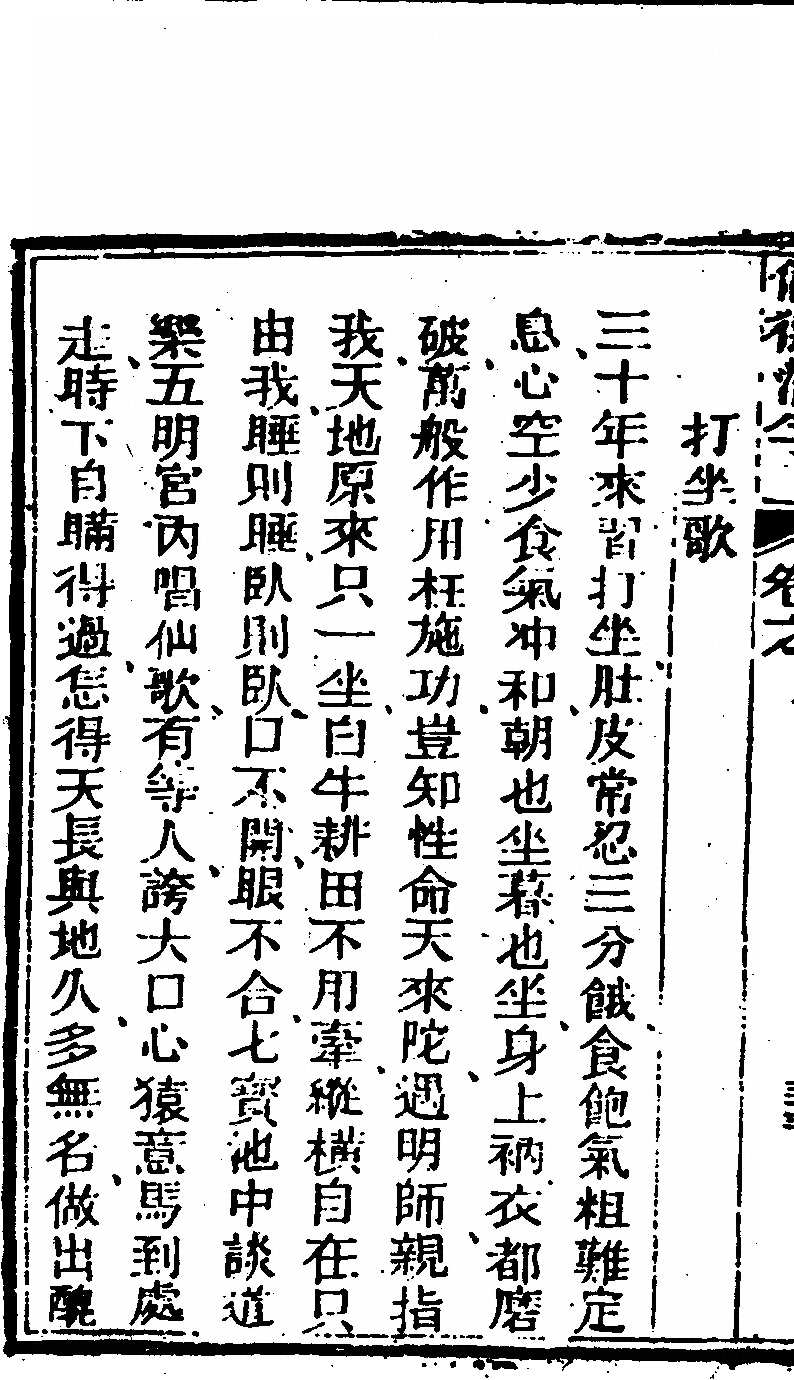 打坐歌
三十年來習打坐肚皮常忍三分餓食飽氣粗難定
息心空少食氣冲和朝也坐暮也坐身上衲衣都磨
破萬般作用枉施功豈知性命天來陀遇明師親指
我天地原來只一坐白牛耕田不用牽縱橫自在只
由我睡則睡臥則臥口不開眼不合七寶池中談道
樂五明宮內唱仙歌有等人誇大口心猿意馬到處
走時下自瞞得過怎得天長與地久多無名做出醜